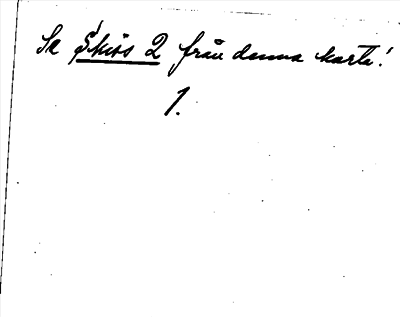 Se Skirs 2 från denna karta!
1.